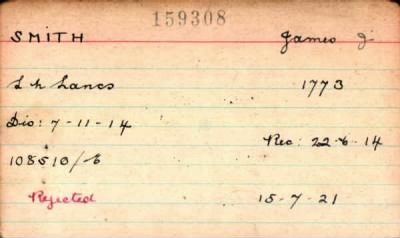 159308
SMITH James J
S. L. Lancs 1773
Dis: 7-11-14
Rec: 22-6-14
108510/6
Rejected 15-7-21